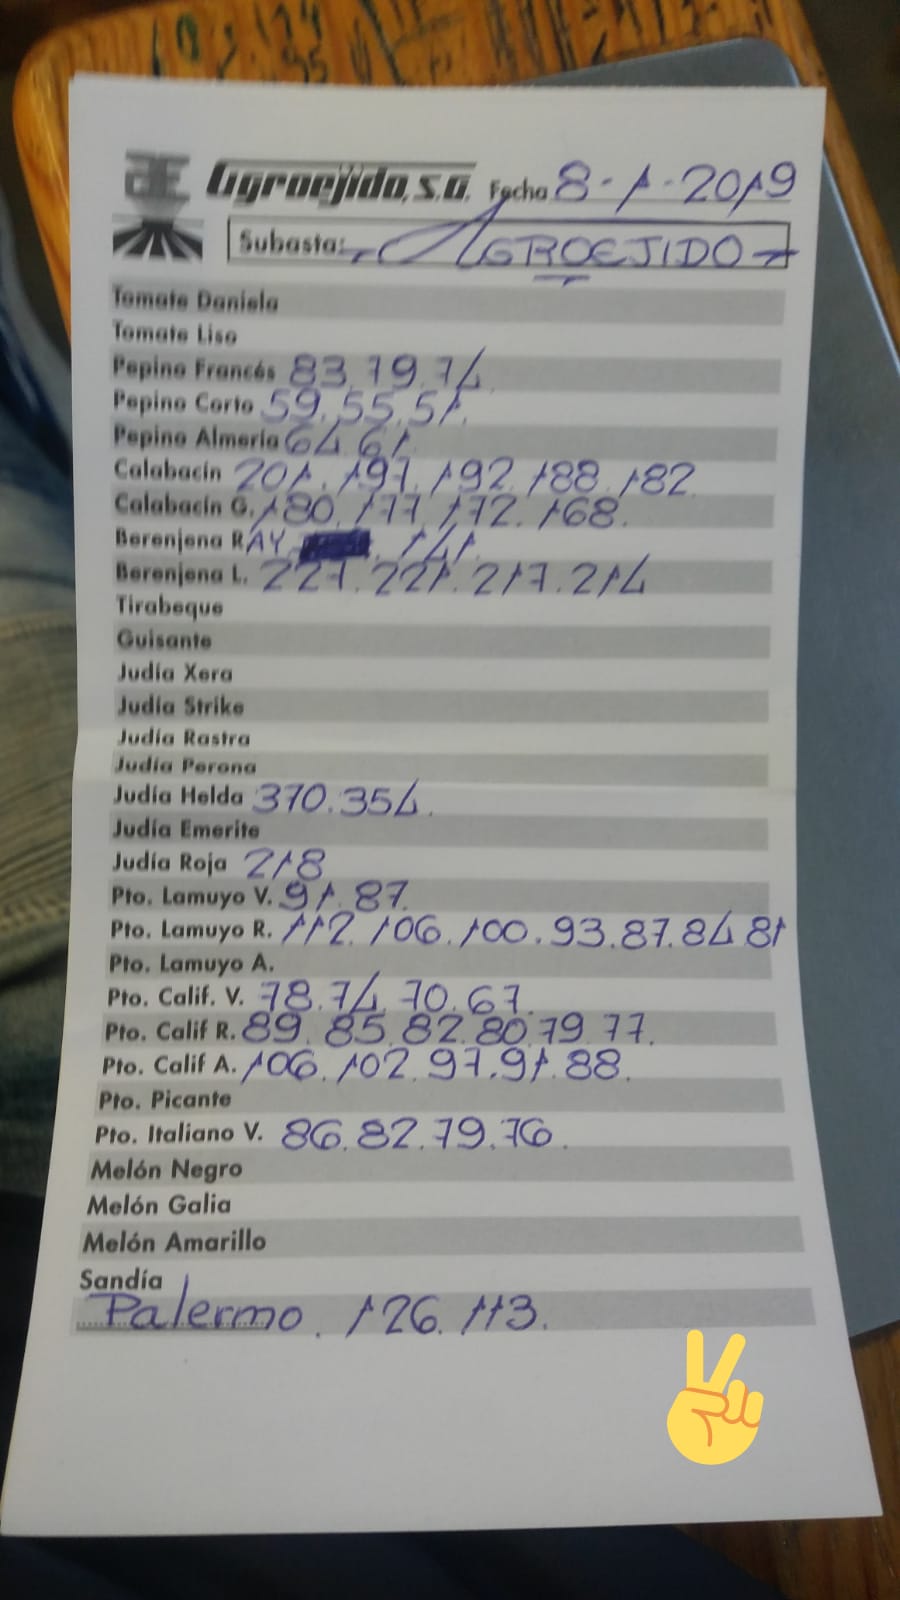 Agroejido, S.A. Fecha 8-1-2019
Subasta: AGROEJIDO
Tomate Daniela
Tomate Liso
Pepino Francés 83.79.74
Pepino Corto 59.55.51.
Pepino Almería 64.61.
Calabacín 201.197.192.188.182
Calabacín G. 180.177.172.168.
Berenjena RAY. 141.
Berenjena L. 227.221.217.214
Tirabeque
Guisante
Judía Xera
Judía Strike
Judía Rastra
Judía Perona
Judía Helda 370.354.
Judía Emerite
Judía Roja 218
Pto. Lamuyo V. 91.87.
Pto. Lamuyo R. 112.106.100.93.87.84.81
Pto. Lamuyo A.
Pto. Calif. V. 78.74.70.67.
Pto. Calif R. 89.85.82.80.79.77.
Pto. Calif A. 106.102.97.91.88.
Pto. Picante
Pto. Italiano V. 86.82.79.76.
Melón Negro
Melón Galia
Melón Amarillo
Sandía
Palermo. 126.113.